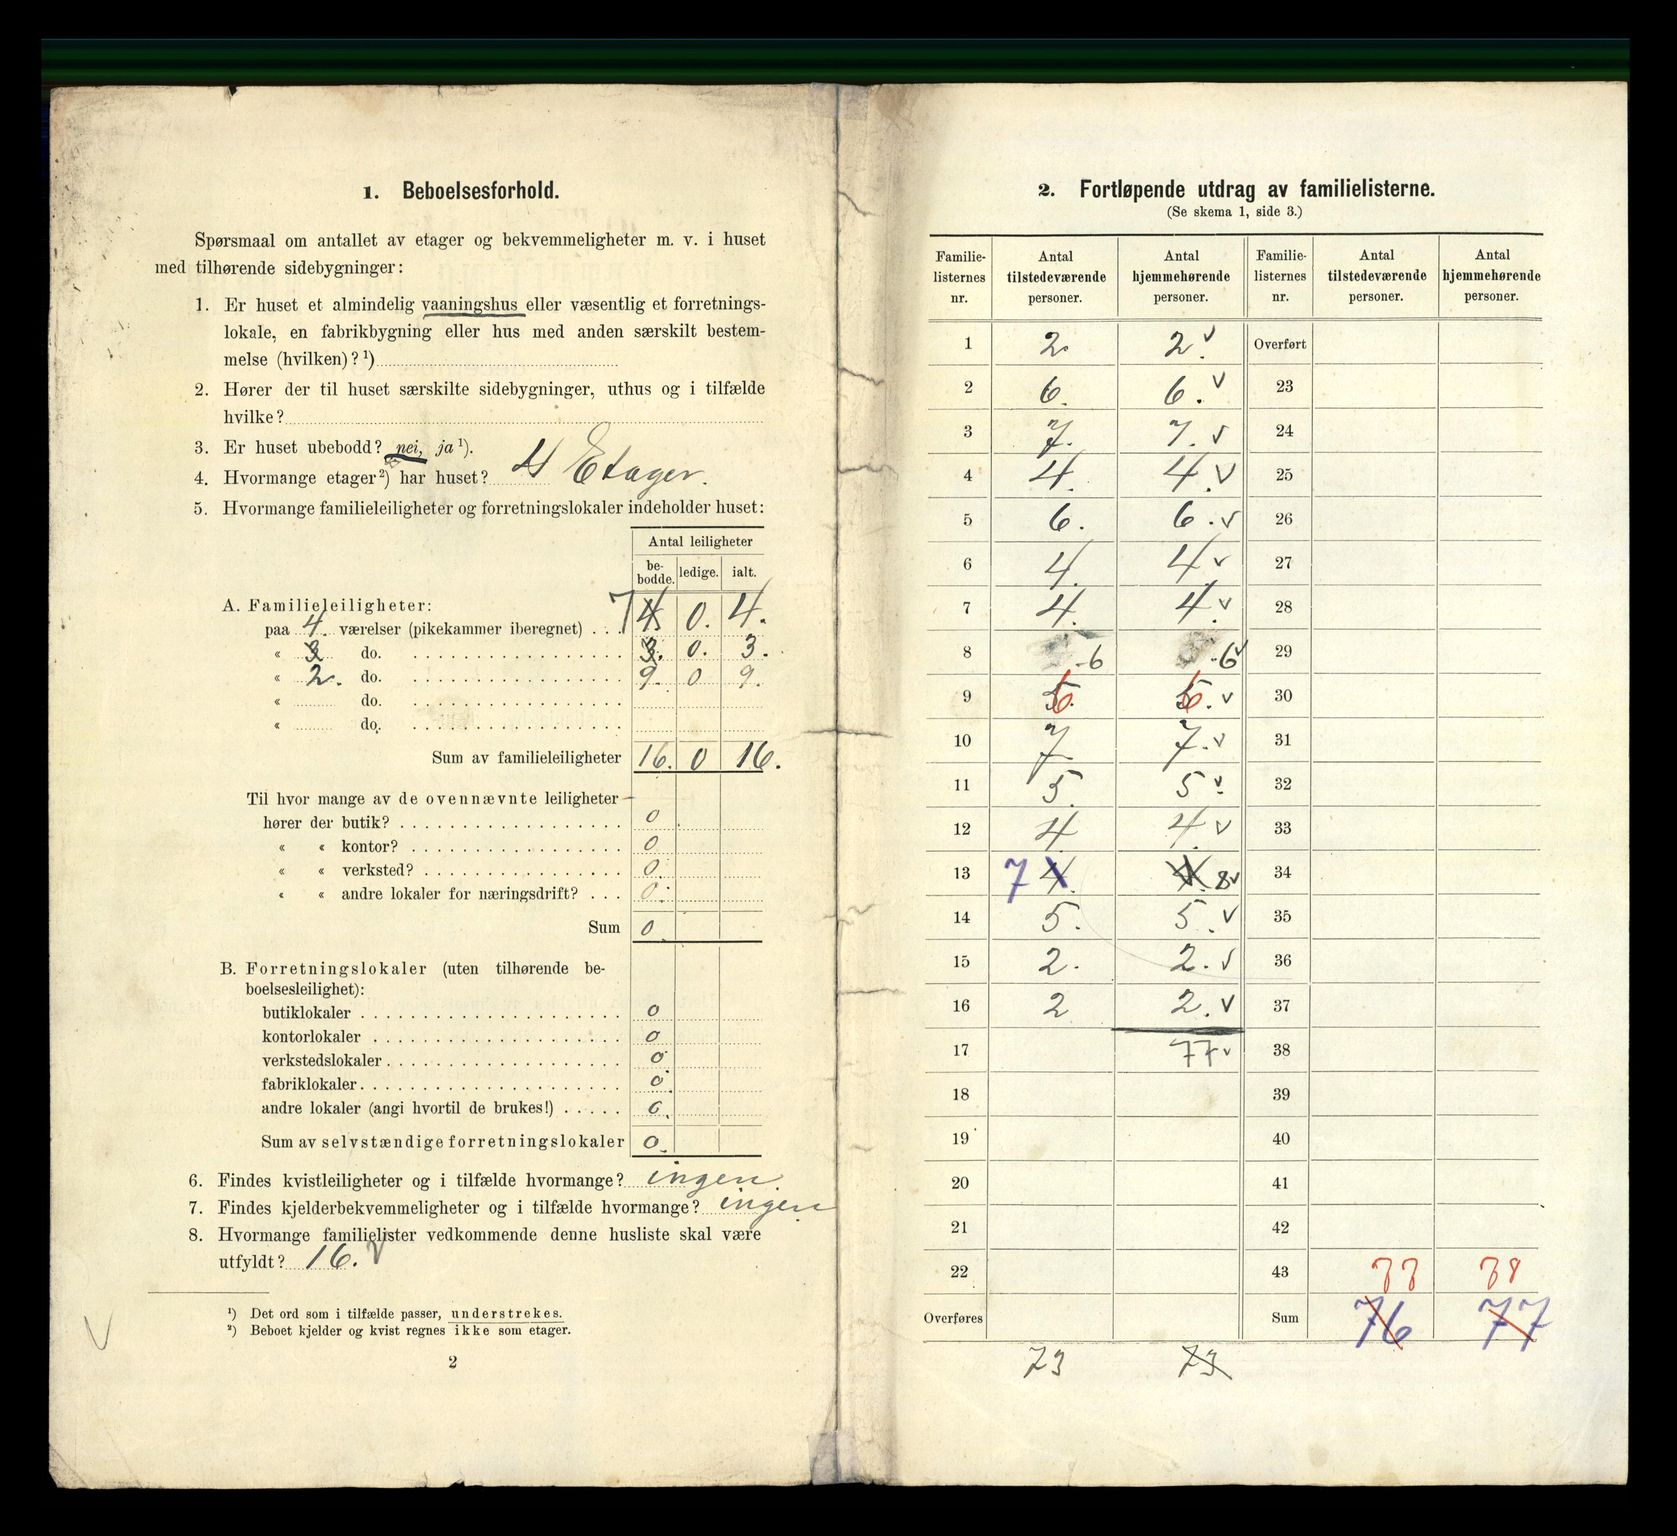 1. Beboelsesforhold.
Spørsmaal om antallet av etager og bekvemmeligheter m. v. i huset
med tilhørende sidebygninger:
1. Er huset et almindelig vaaningshus eller væsentlig et forretnings-
lokale, en fabrikbygning eller hus med anden særskilt bestem-
melse (hvilken)? ¹)
2. Hører der til huset særskilte sidebygninger, uthus og i tilfælde
hvilke?
3. Er huset ubebodd? nei, ja ¹).
4. Hvormange etager ²) har huset? 4 Etager.
5. Hvormange familieleiligheter og forretningslokaler indeholder huset:
Antal leiligheter
be-bodde. ledige. ialt.
A. Familieleiligheter:
paa 4. værelser (pikekammer iberegnet) . . . 7 4 0. 4.
« 3 do. 3. 0. 3.
« 2. do. 9. 0 9.
« do.
« do.
Sum av familieleiligheter 16. 0 16.
Til hvor mange av de ovennævnte leiligheter
hører der butik? 0
« « kontor? 0
« « verksted? 0.
« « andre lokaler for næringsdrift? . . . 0.
Sum 0.
B. Forretningslokaler (uten tilhørende be-
boelsesleilighet):
butiklokaler 0
kontorlokaler 0
verkstedslokaler 0
fabriklokaler 0
andre lokaler (angi hvortil de brukes!) 0.
Sum av selvstændige forretningslokaler 0.
6. Findes kvistleiligheter og i tilfælde hvormange? ingen.
7. Findes kjelderbekvemmeligheter og i tilfælde hvormange? ingen
8. Hvormange familielister vedkommende denne husliste skal være
utfyldt? 16. V
¹) Det ord som i tilfælde passer, understrekes.
²) Beboet kjelder og kvist regnes ikke som etager.
2
2. Fortløpende utdrag av familielisterne.
(Se skema 1, side 3.)
Familie-listernes nr. Antal tilstedeværende personer. Antal hjemmehørende personer. Familie-listernes nr. Antal tilstedeværende personer. Antal hjemmehørende personer.
1 2. 2. v Overført
2 6. 6. v 23
3 7. 7. v 24
4 4. 4. v 25
5 6. 6. v 26
6 4. 4 v 27
7 4. 4. v 28
8 6 6 v 29
9 6 6 v 30
10 7 7. v 31
11 5. 5. v 32
12 4 4. v 33
13 7 4. 4. 8 v 34
14 5. 5. v 35
15 2. 2. v 36
16 2 2. v 37
17 77 v 38
18 39
19 40
20 41
21 42
22 43 77 78
Overføres Sum 76 77
73 73